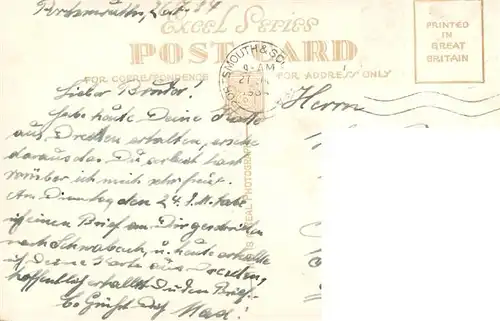 Portsmouth,
EXCEL SERIES
POST CARD
PRINTED
IN
GREAT
BRITAIN
FOR CORRESPONDENCE
FOR ADDRESS ONLY
PORTSMOUTH & SO
9-AM
Herrn
Lieber Bruder!
Habe heute Deine Karte
aus Dresden erhalten, ersehe
daraus das Du
worüber ich mich sehr freut.
Am Dienstag den 24.
ich einen Brief an Dir geschrieben
nach Schwabach, u. heute erhalte
ich deine Karte aus Dresden,
hoffentlich erhällst Du den Brief.
Es Grüßt Dich Max!
IS A REAL PHOTOGRAPH